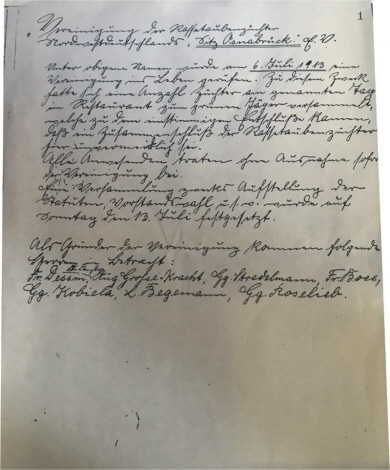 1
„Vereinigung der Rassetaubenzüchter
Nordwestdeutschlands", Sitz Osnabrück. E. V.
Unter obigem Namen wurde am 6. Juli 1913 eine
Vereinigung ins Leben gerufen. Zu diesem Zweck
hatte sich eine Anzahl Züchter am genannten Tage
im Restaurant zum grünen Jäger versammelt,
welche zu dem einstimmigen Entschluß kamen,
daß ein Zusammenschluß der Rassetaubenzüchter
hier unvermeidlich sei.
Alle Anwesenden traten ohne Ausnahme sofort
der Vereinigung bei.
Versammlung zwecks Aufstellung der
Statuten, Vorstandswahl u.s.w. wurde auf
Sonntag den 13. Juli festgesetzt.
Als Gründer der Vereinigung kommen folgende
Herren in Betracht:
Fr. Dessin, Aug. Grosse-Kracht, Gg. Stredelmann, Fr. Boes,
Gg. Kobiela, L. Begemann, Gg. Roselieb.